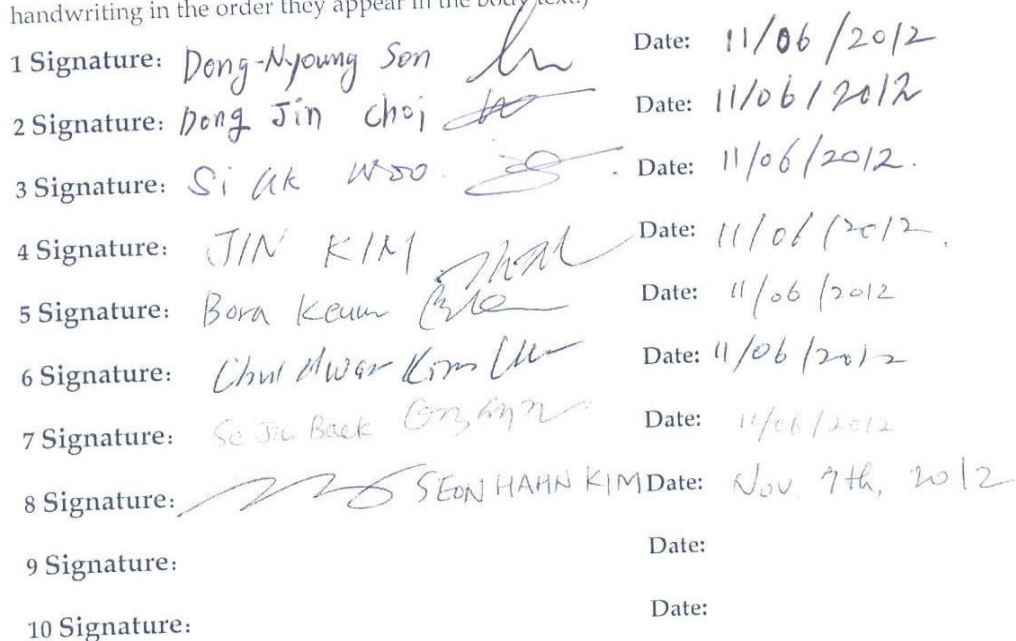 handwriting in the order they appear in the body text.)
1 Signature: Dong-Nyoung Son Date: 11/06/2012
2 Signature: Dong Jin Choi Date: 11/06/2012
3 Signature: Si Uk Woo. Date: 11/06/2012.
4 Signature: JIN KIM Date: 11/06/2012.
5 Signature: Bora Keum Date: 11/06/2012
6 Signature: Chul Hwan Kim Date: 11/06/2012
7 Signature: Se Jin Baek Date: 11/06/2012
8 Signature: SEON HAHN KIM Date: Nov. 7th, 2012
9 Signature: Date:
10 Signature: Date: